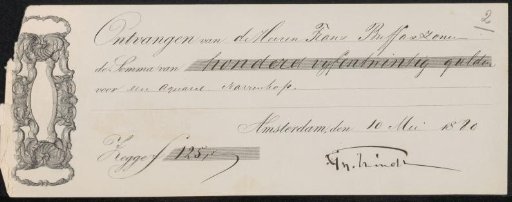 2
Ontvangen van de Heeren Frans Buffa & Zonen
de Somma van honderd vyfentwintig gulden
voor een aquarel
Amsterdam, den 10 Mei 1890
Zegge f 125,-